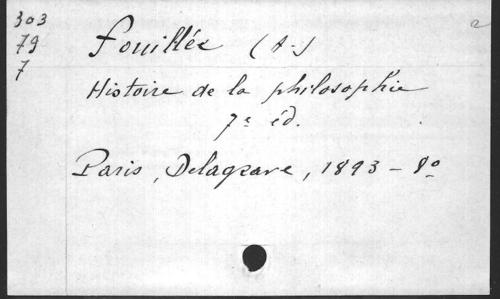 303
79
7
Fouillée (A-)
2
Histoire de la philosophie
7e éd.
Paris, Delagrave, 1893 - 8o